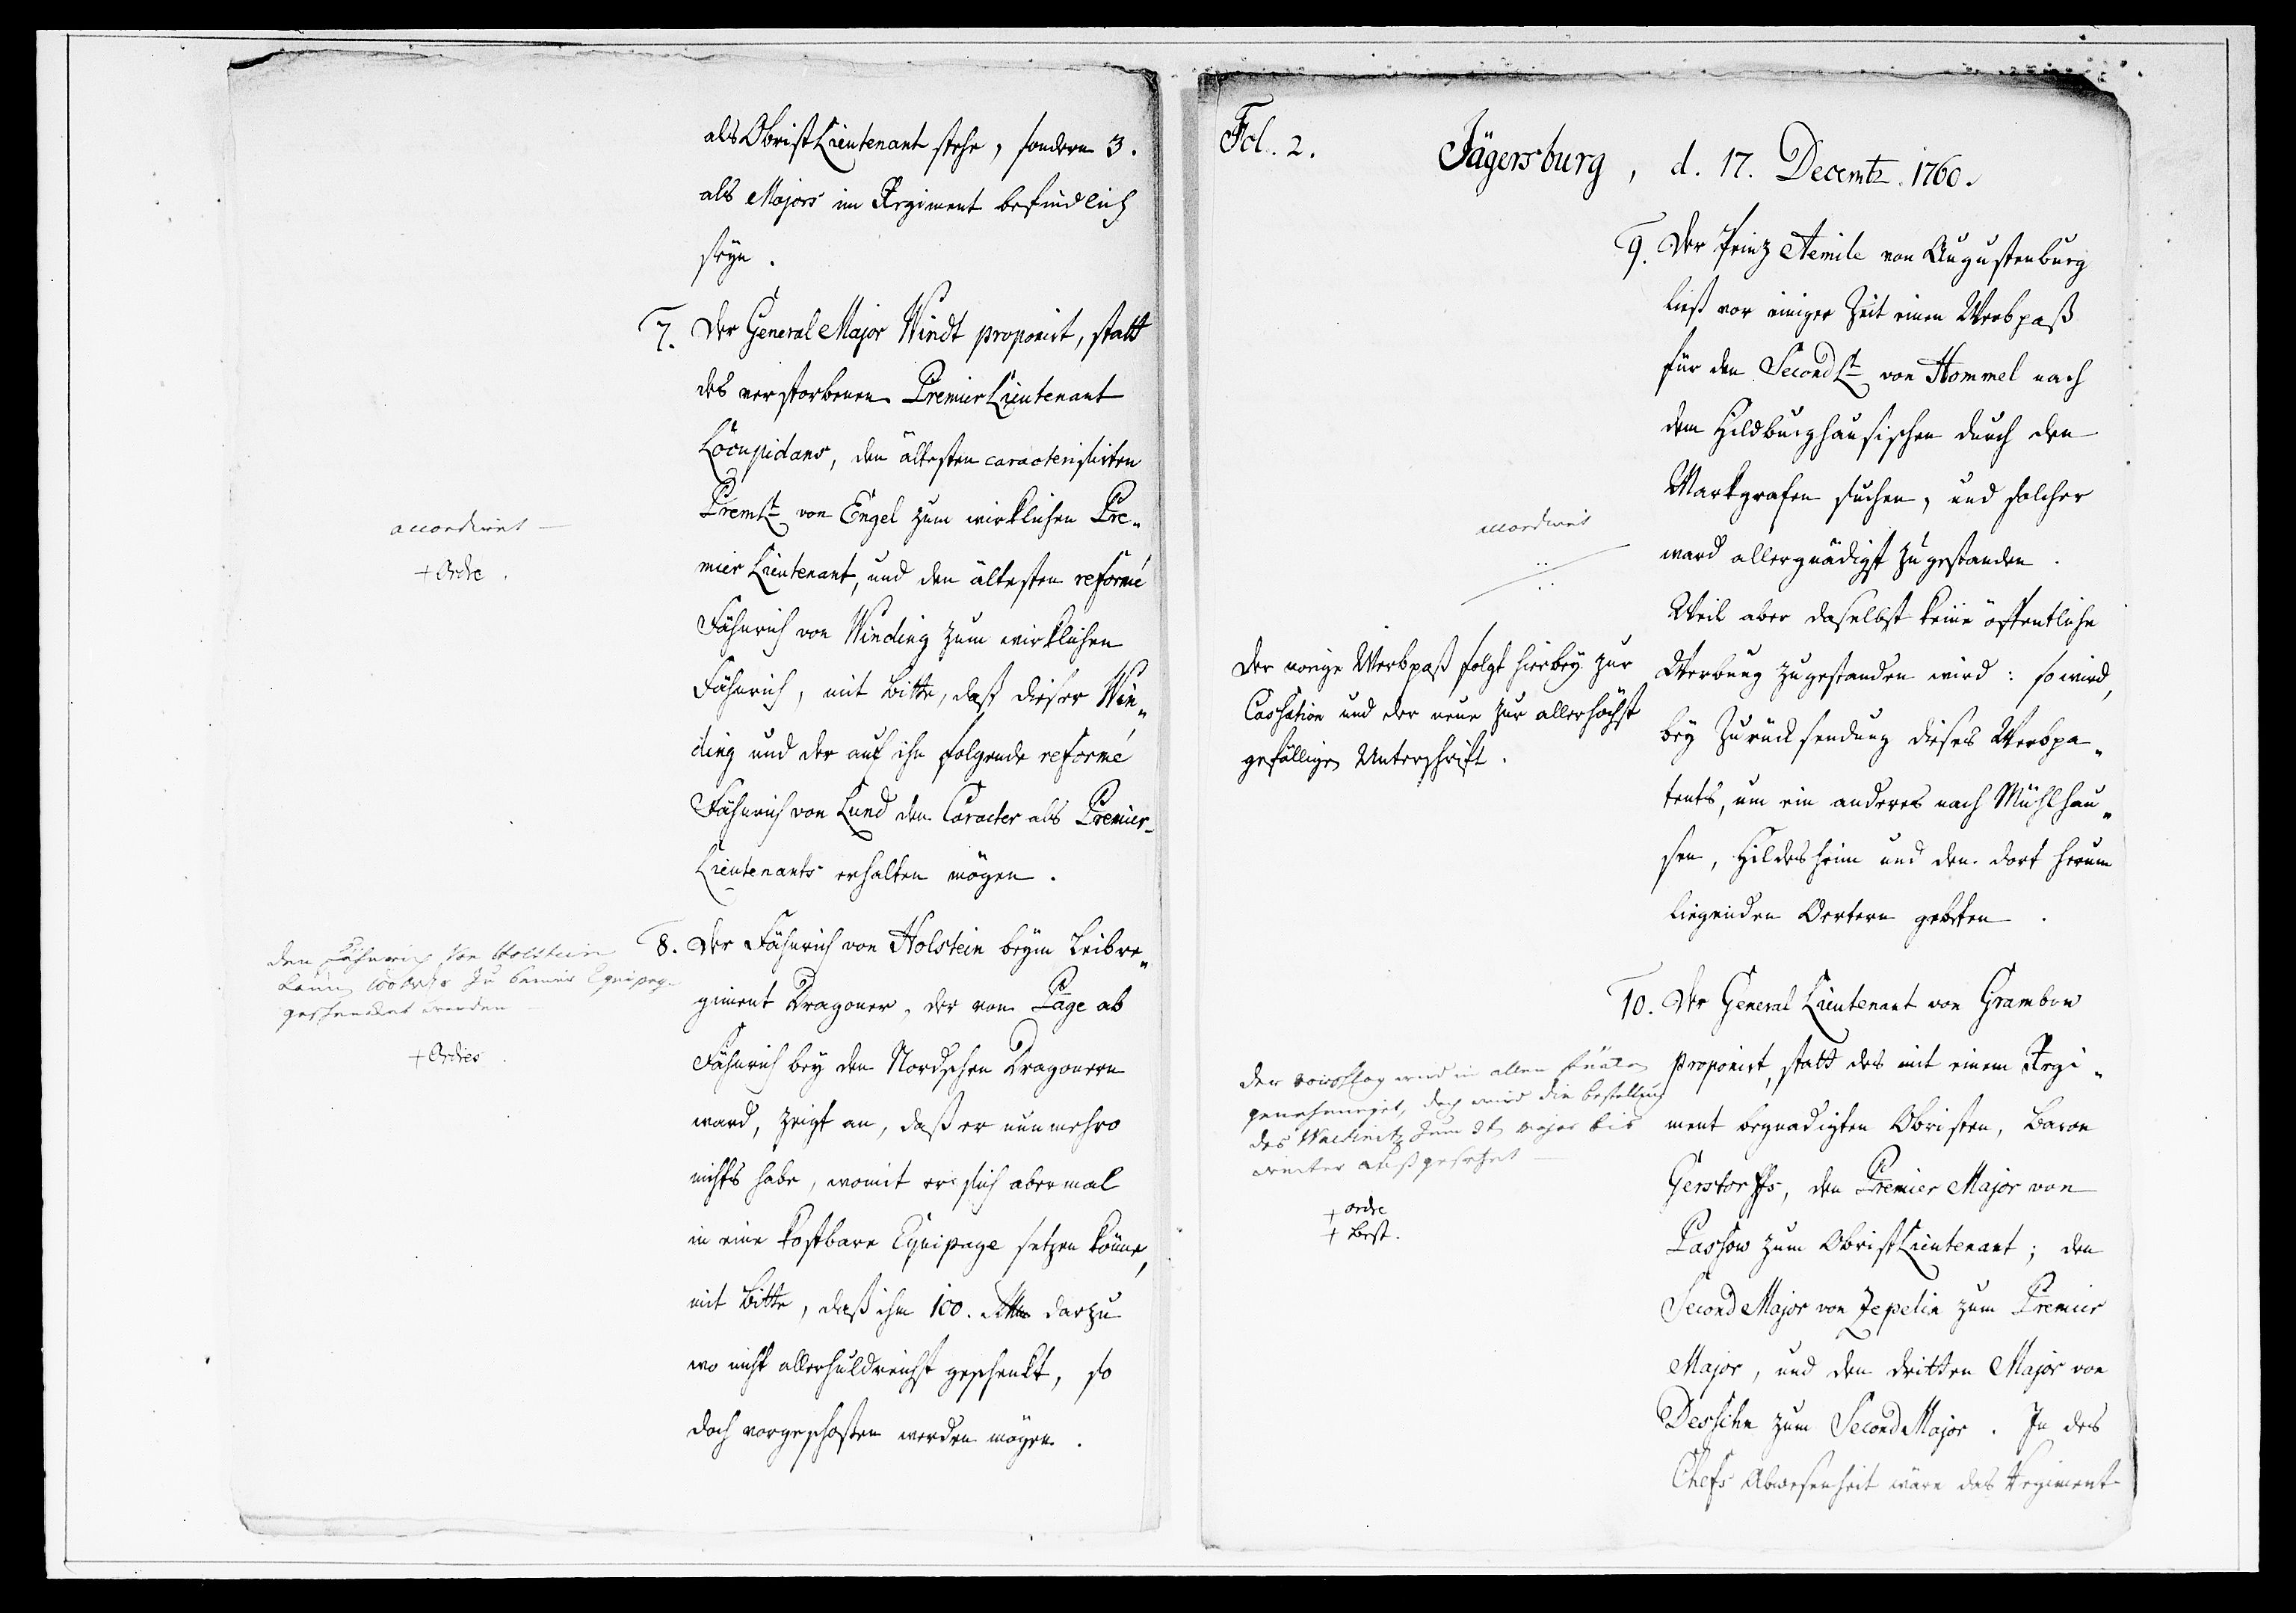 als Obrist Lieutenant stehe, sondern 3.
als Majors im Regiment befindlich
seyn.
7. Der General Major Windt proponirt, statt
des verstorbenen Premier Lieutenant
den ältesten caracterisirten
Premlt. von Engel zum wirklichen Pre„
mier Lieutenant, und den ältesten reformé
Fähnrich von Winding zum wirklichen
Fähnrich, mit Bitte, daß dieser Win„
ding und der auf ihn folgende reformé
Fähnrich von Lund den Caracter als Premier-
Lieutenants erhalten mögen.
accordiret
+ Ordre.
8. Der Fähnrich von Holstein beym Leibre„
giment Dragoner, der von Page ab
Fähnrich bey den Nordschen Dragonern
ward, zeigt an, daß er nunmehro
nichts habe, womit er sich abermal
in eine kostbare Equipage setzen könne,
mit Bitte, daß ihm 100. Rthlr. darzu
wo nicht allerhuldreichst geschenkt, so
doch vorgeschoßen werden mögen.
den Fähnrich von Holstein
100 Rthlr zu Equipage
geschencket werden
+ Ordres.
Fol. 2.
Jägersburg, d. 17. Decembr. 1760.
9. Der Prinz Aemile von Augustenburg
ließ vor einiger Zeit einen Werbpaß
für den Second Lt. von Hommel nach
dem Hildburghausischen durch den
Markgrafen suchen, und solcher
ward allergnädigst zugestanden.
Weil aber daselbst keine öffentliche
Werbung zugestanden wird: so wird,
bey Zurücksendung dieses Werbpa„
tents, um ein anderes nach Mühlhau„
sen, Hildesheim und den dort herum
liegenden Oertern gebeten.
accordiret
Der vorige Werbpaß folgt hierbey zur
Cassation und der neue zur allerhöchst
gefälligen Unterschrift.
10. Der General Lieutenant von Grambow
proponirt, statt des mit einem Regi„
ment begnadigten Obristen, Baron
Gerstorffs, den Premier Major von
Passow zum Obrist Lieutenant; den
Second Major von Zepelin zum Premier
Major, und den dritten Major von
zum Second Major. In des
Chefs Abwesenheit wäre das Regiment
der vorschlag wird in allen
genehmiget, doch wird die bestellung
des zum 3t. Major bis
weiter außgesetzet
+ ordre
+ Best.